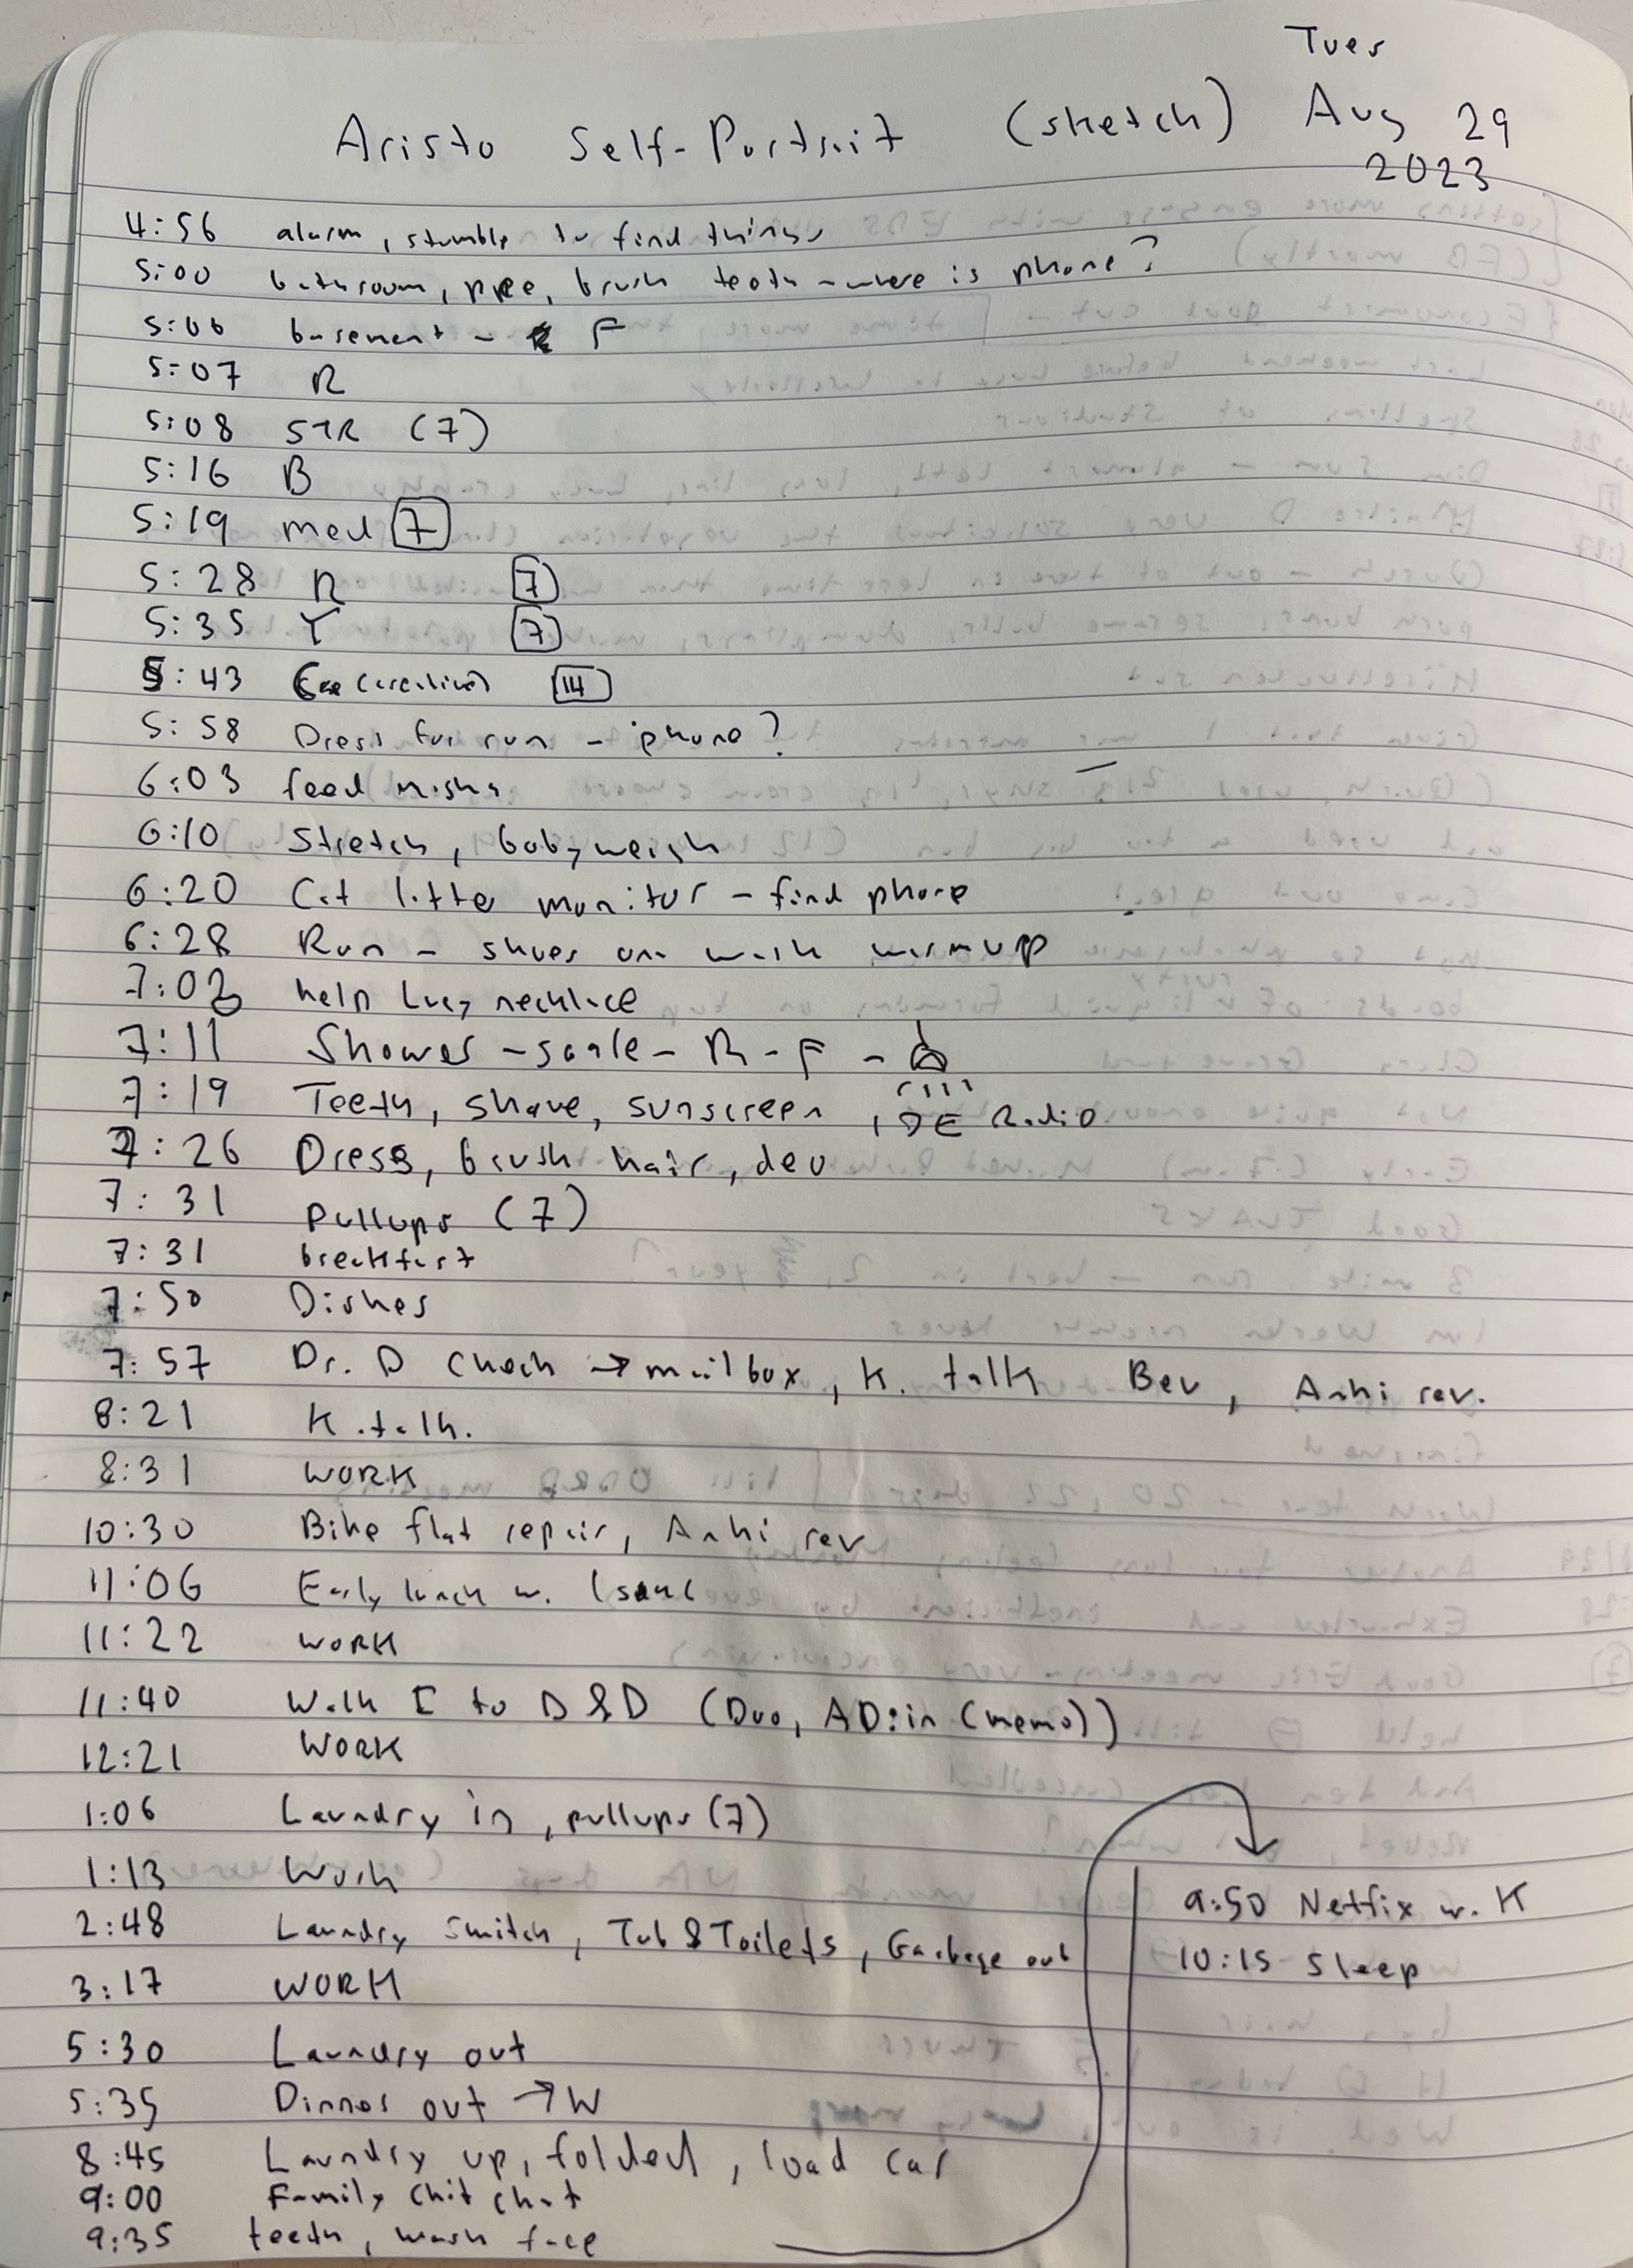 Tues
Aristo Self-Portrait (sketch) Aug 29
2023
4:56 alarm, stumble to find things
5:00 bathroom, pee, brush teeth - where is phone?
5:06 basement - F
5:07 R
5:08 STR (7)
5:16 B
5:19 med 7
5:28 R 7
5:35 Y 7
5:43 (creative) 14
5:58 Dress for run - iphone?
6:03 feed misha
6:10 Stretch, babyweigh
6:20 Cat litter monitor - find phone
6:28 Run - shoes on walk warmup
7:02 help Lucy necklace
7:11 Shower - scale - R - F -
7:19 Teeth, shave, sunscreen, DE Radio
7:26 Dress, brush hair, deo
7:31 Pullups (7)
7:31 breakfast
7:50 Dishes
7:57 Dr. D Check → mailbox, K. talk Bev, Anki rev.
8:21 K. talk.
8:31 WORK
10:30 Bike flat repair, Anki rev
11:06 Early lunch w. Isaac
11:22 WORK
11:40 Walk I to D&D (Duo, AD:in (memo))
12:21 WORK
1:06 Laundry in, pullups (7)
1:13 Work
2:48 Laundry switch, Tub & Toilets, Garbage out
3:17 WORK
5:30 Laundry out
5:35 Dinner out → W
8:45 Laundry up, folded, load car
9:00 Family Chit chat
9:35 teeth, wash face
9:50 Netfix w. K
10:15 Sleep